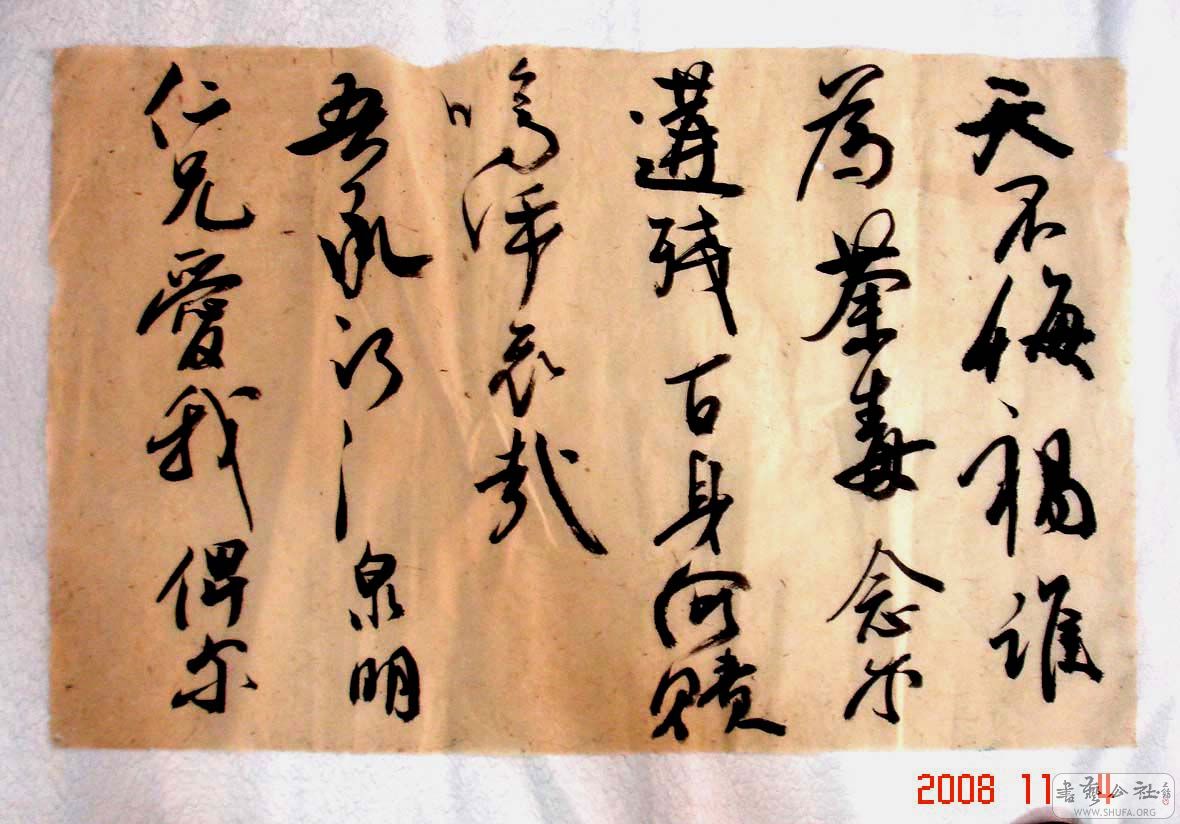 天不悔禍誰
為荼毒念尔
遘殘百身何贖
嗚呼哀哉
吾承
泉明
仁兄愛我俾尔
2008 11 4
書藝公社
WWW.SHUFA.ORG